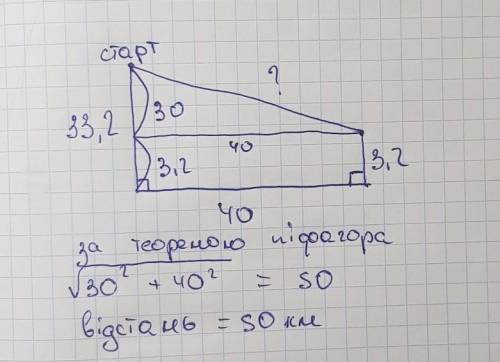 старт
?
30
33,2
40
3,2
3,2
40
за теореmою піфагора
√30² + 40² = 50
відстань = 50 км